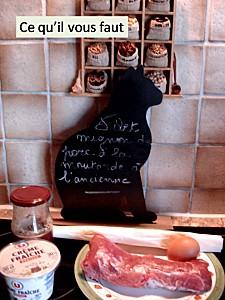 Ce qu'il vous faut
Filet
mignon de
porc à la
moutarde à
l'ancienne
U
CRÈME
FRAÎCHE